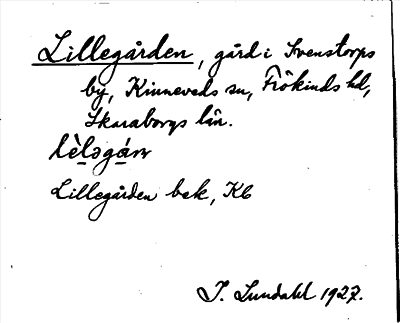 Lillegården, gård i Svenstorps
by, Kinneveds sn, Frökinds hd,
Skaraborgs län.
Lillegården bek, Kb
I. Lundahl 1927.